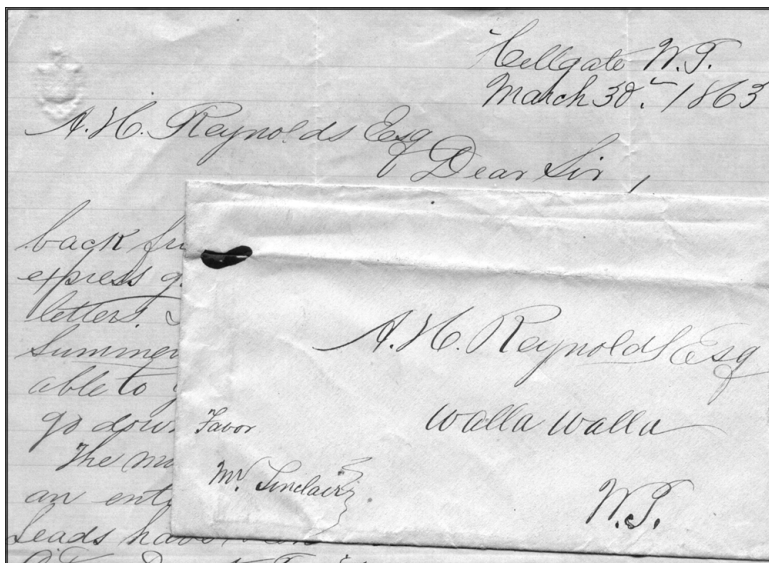 Hellgate W.T.
March 30th. 1863
A.H. Reynolds Esq
Dear Sir,
back
express
letters.
Summer
able to
go down
The
an
leads have
A.H. Reynolds Esq
Walla Walla
W.T.
Favor
Mr. Sinclair